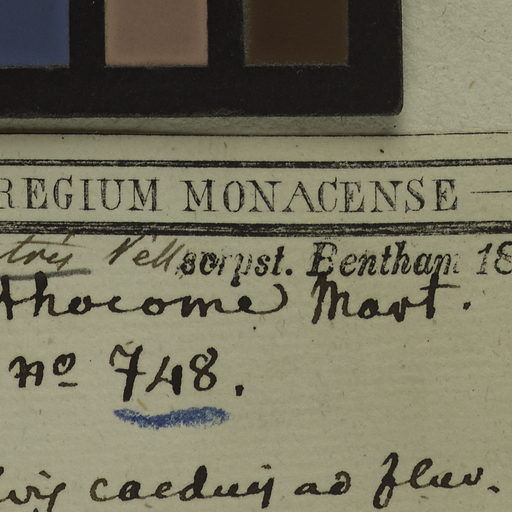 REGIUM MONACENSE
tris Vell scrpst. Bentham 18
thocome Mart.
nº 748.
caeduis ad fluv.